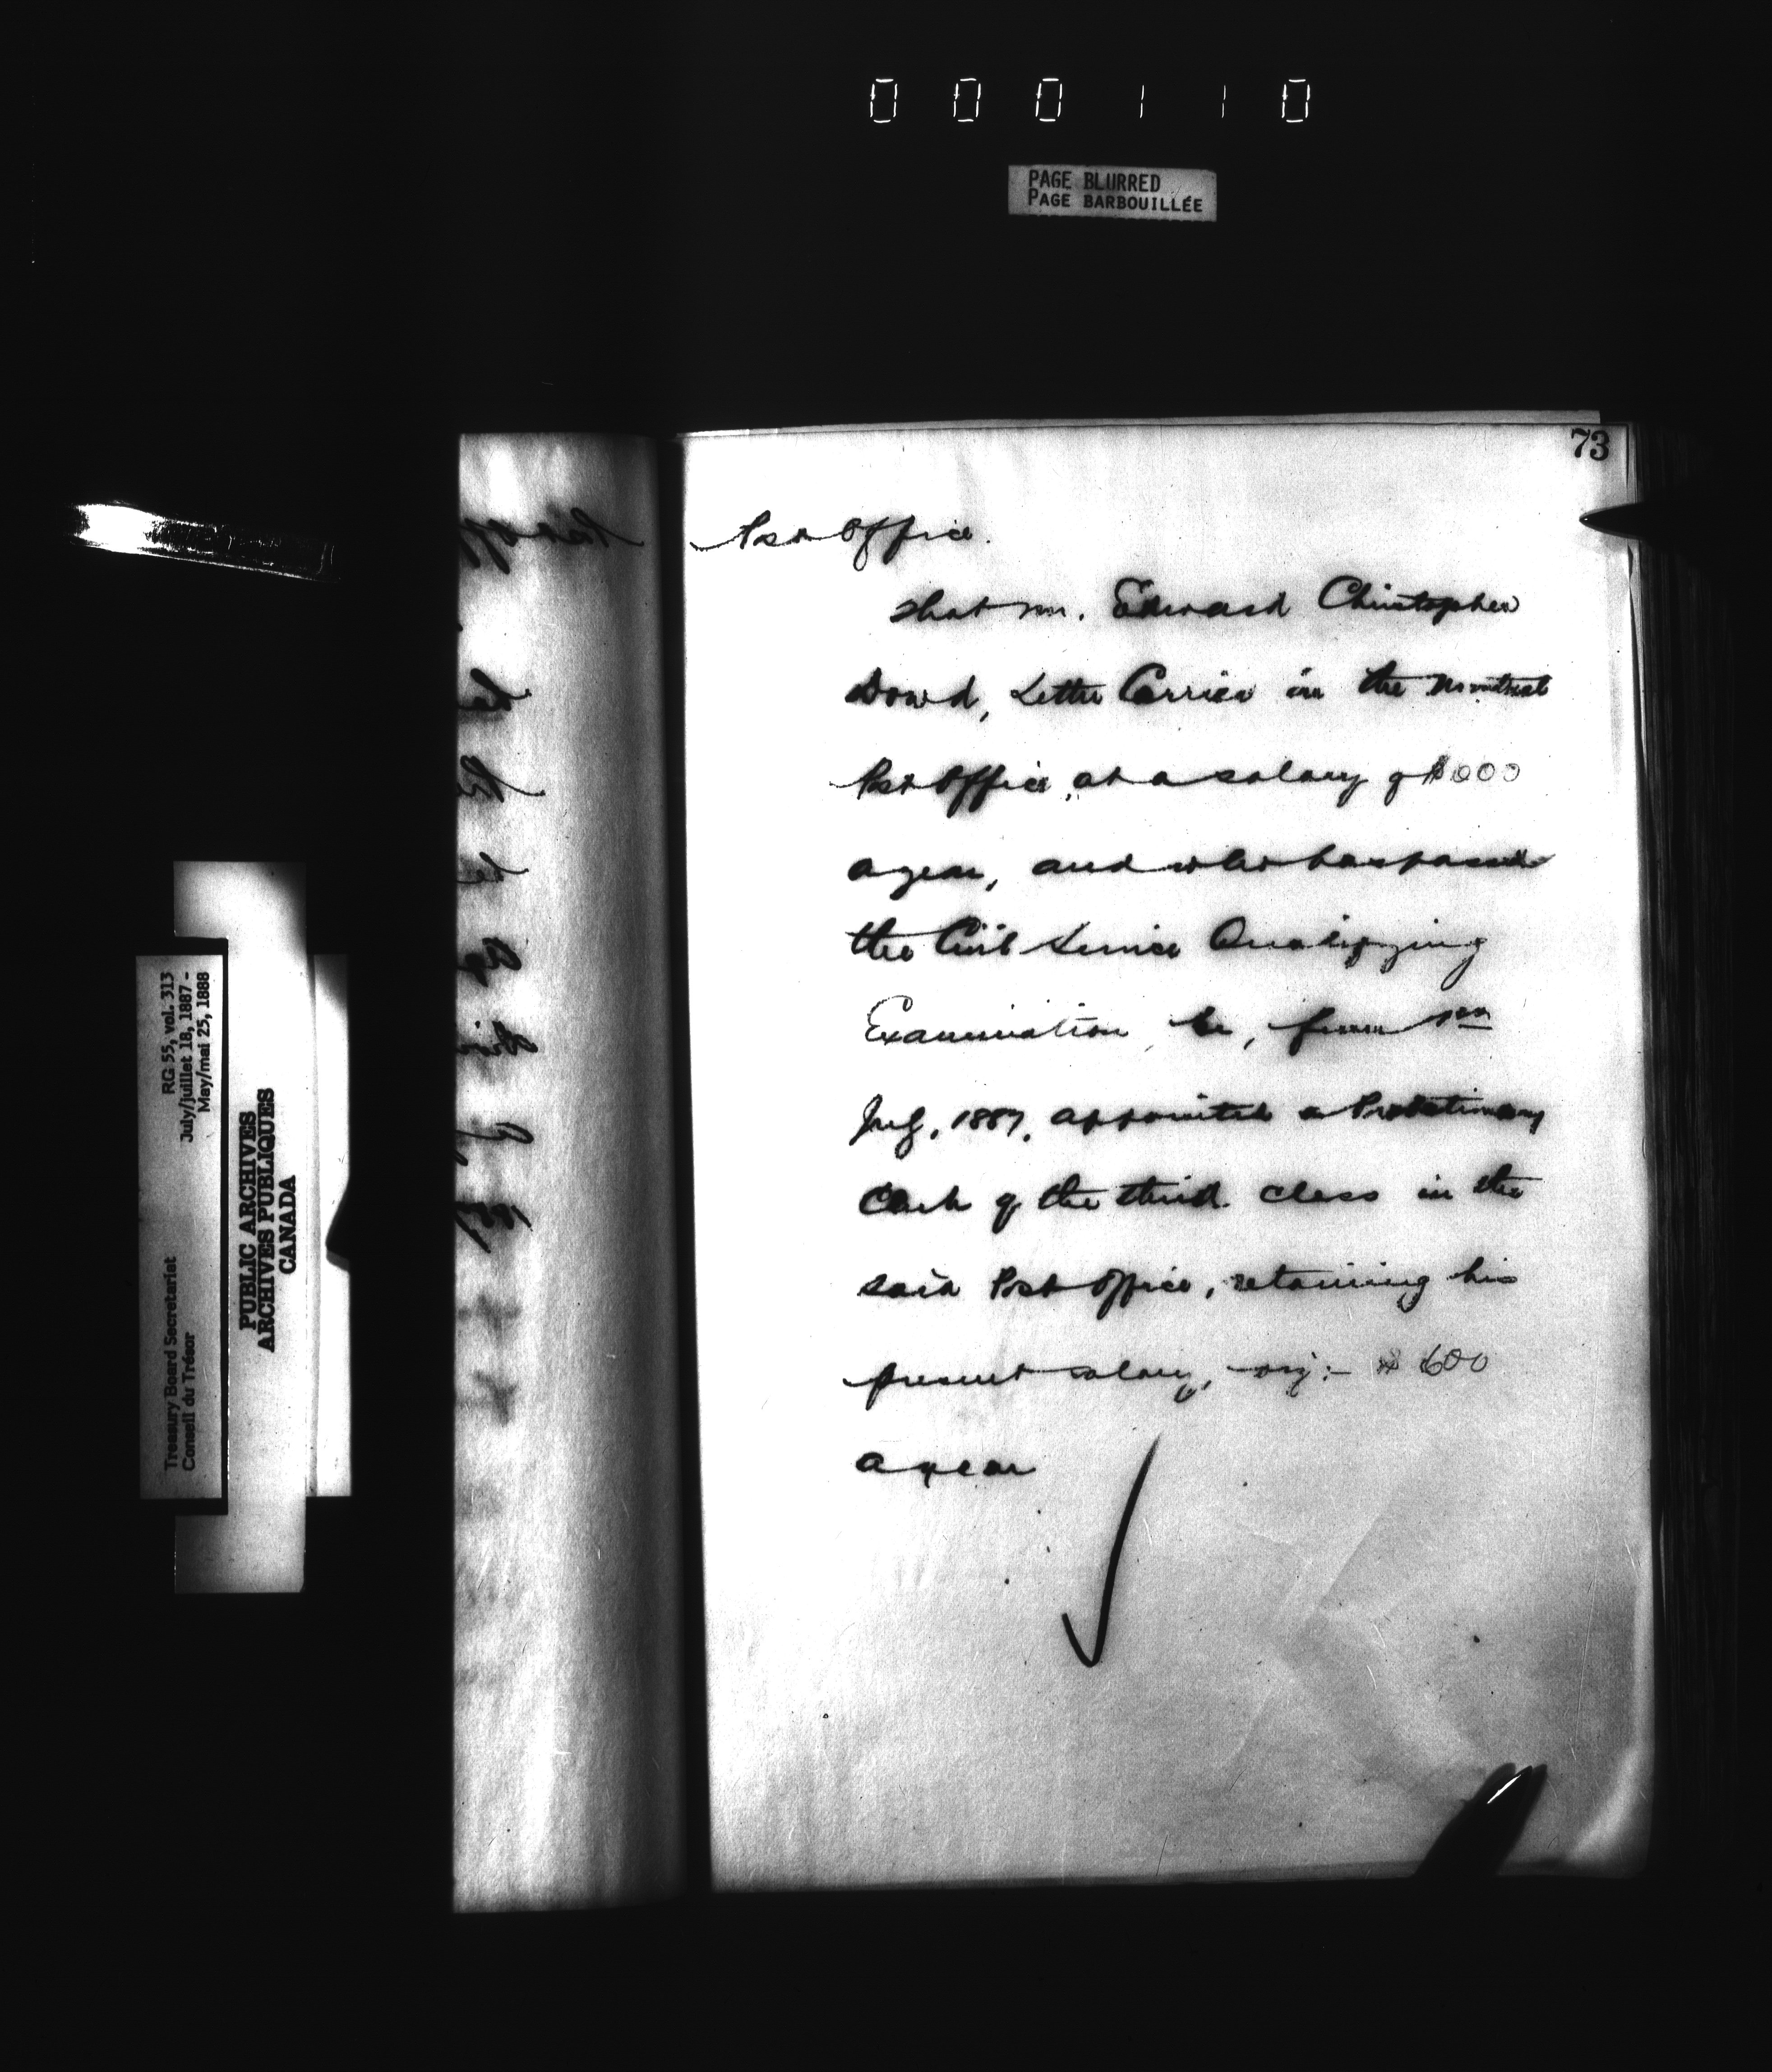 000110
PAGE BLURRED
PAGE BARBOUILLÉE
73
Post Office.
That Mr. Edward Christopher
Dowd, Letter Carrier in the Montreal
Post Office, at a salary of $600
a year, and who has passed
the Civil Service Qualifying
Examination, be, from
July, 1887, appointed a Probationary
Clerk of the third class in the
said Post Office, retaining his
present salary, viz:- $600
a year
RG 55, vol. 313
July/juillet 18, 1887 -
May/mai 25, 1888
Treasury Board Secretariat
Conseil du Trésor
PUBLIC ARCHIVES
ARCHIVES PUBLIQUES
CANADA